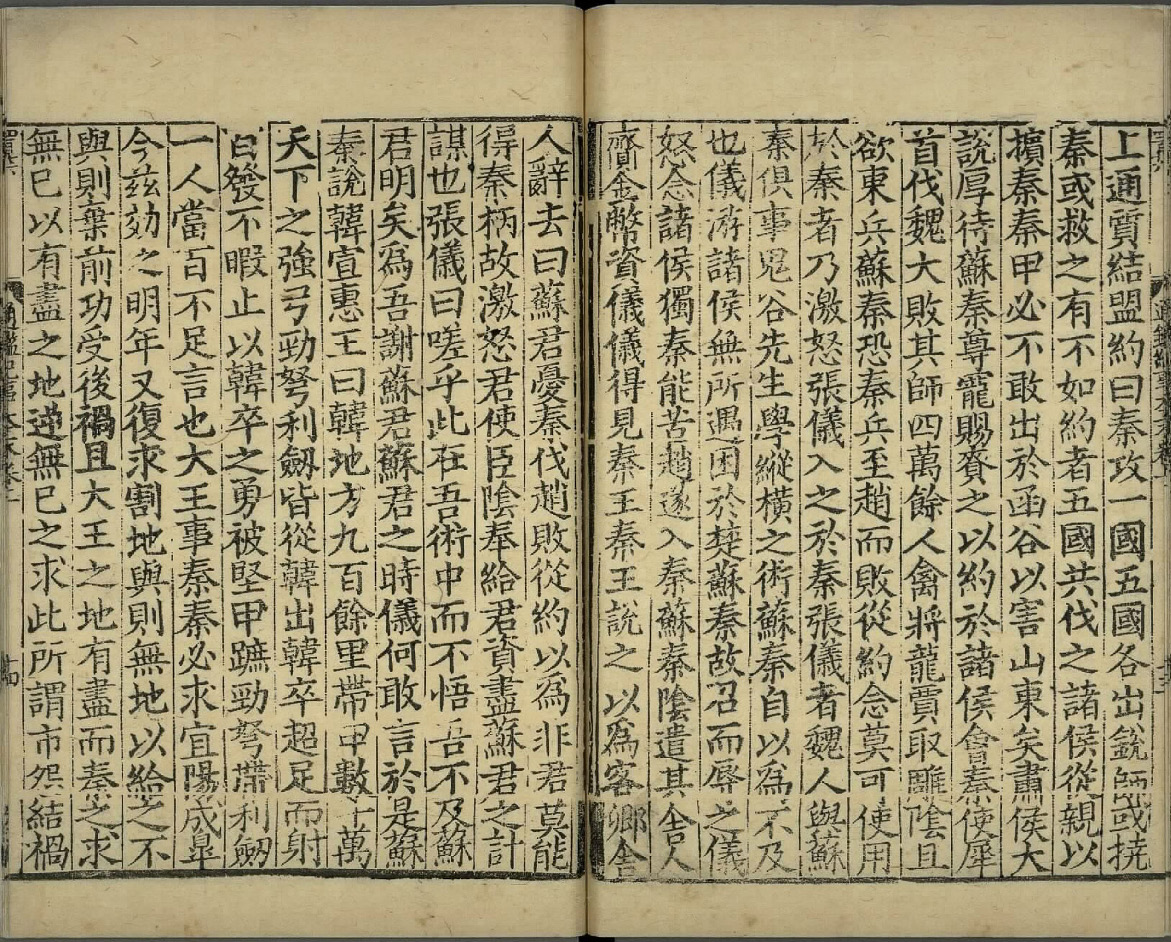 上通質結盟約曰秦攻一國五國各出銳師或撓
秦或救之有不如約者五國共伐之諸侯從親以
擯秦秦甲必不敢出於函谷以害山東矣肅侯大
說厚待蘇秦尊寵賜賚之以約於諸侯會秦使犀
首伐魏大敗其師四萬餘人禽將龍賈取雕陰且
欲東兵蘇秦恐秦兵至趙而敗從約念莫可使用
於秦者乃激怒張儀入之於秦張儀者魏人與蘇
秦俱事鬼谷先生學縱橫之術蘇秦自以為不及
也儀游諸侯無所遇困於楚蘇秦故召而辱之儀
怒念諸侯獨秦能苦趙遂入秦蘇秦陰遣其舍人
齎金幣資儀儀得見秦王秦王說之以為客卿舍
人辭去曰蘇君憂秦伐趙敗從約以為非君莫能
得秦柄故激怒君使臣陰奉給君資盡蘇君之計
謀也張儀曰嗟乎此在吾術中而不悟吾不及蘇
君明矣為吾謝蘇君蘇君之時儀何敢言於是蘇
秦說韓宣惠王曰韓地方九百餘里帶甲數十萬
天下之強弓勁弩利劒皆從韓出韓卒超足而射
百發不暇止以韓卒之勇被堅甲蹠勁弩帶利劒
一人當百不足言也大王事秦秦必求宜陽成臯
今茲効之明年又復求割地與則無地以給之不
與則棄前功受後禍且大王之地有盡而秦之求
無已以有盡之地逆無已之求此所謂市怨結禍